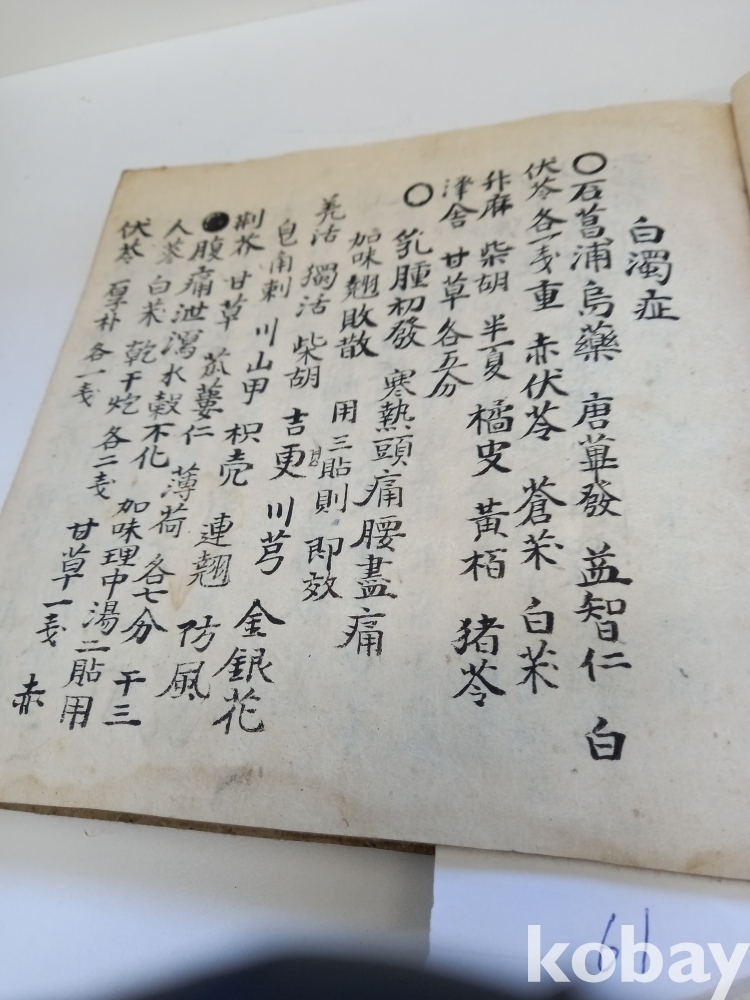 白濁症
○石菖浦烏藥 唐蓽發 益智仁 白
伏苓各一戔重 赤伏苓 蒼朮 白朮
升麻 柴胡 半夏 橘皮 黃栢 猪苓
泽舍 甘草各五分
○乳腫初發 寒熱頭痛腰盡痛
加味翹敗散 用三貼則即效
羌活 獨活 柴胡 吉更 川芎 金銀花
皂角刺 川山甲 枳壳 連翹 防風
荊芥 甘草 苽蔞仁 薄荷 各七分 干三
●腹痛泄瀉水穀不化 加味理中湯二貼用
人蔘 白朮 乾干炮 各二戔 甘草一戔 赤
伏苓 厚朴 各一戔
61
kobay